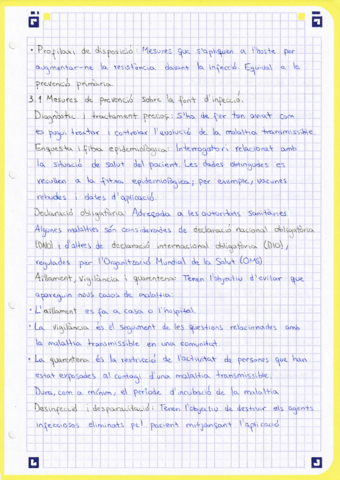 · Profilaxi de disposició: Mesures que s'apliquen a l'hoste per
augmentar-ne la resistència davant la infecció. Equival a la
prevenció primària.
3.1 Mesures de prevenció sobre la font d'infecció.
Diagnòstic i tractament precoç: S'ha de fer tan aviat com
es pugui tractar i controlar l'evolució de la malaltia transmissible.
Enquesta i fitxa epidemiològica: Interrogatori relacionat amb
la situació de salut del pacient. Les dades obtingudes es
recullen a la fitxa epidemiològica; per example, vacunes
rebudes i dates d'aplicació.
Declaració obligatòria: Adreçada a les autoritats sanitàries
Algunes malalties són considerades de declaració nacional obligatòria
(DNO) i d'altres de declaració internacional obligatòria (DIO),
regulades per l'Organització Mundial de la Salut (OMS)
Aïllament, vigilància i quarantena: Tenen l'objectiu d'evitar que
apareguin nous casos de malaltia:
· L'aïllament es fa a casa o l'hospital.
· La vigilància és el seguiment de les questions relacionades amb
la malaltia transmissible en una comunitat.
· La quarantena és la restricció de l'activitat de persones que han
estat exposades al contagi d'una malaltia transmissible.
Dura, com a mínim, el període d'incubació de la malaltia.
Desinfecció i desparasitació: Tenen l'objectiu de destruir els agents
infecciosos eliminats pel pacient mitjançant l'aplicació